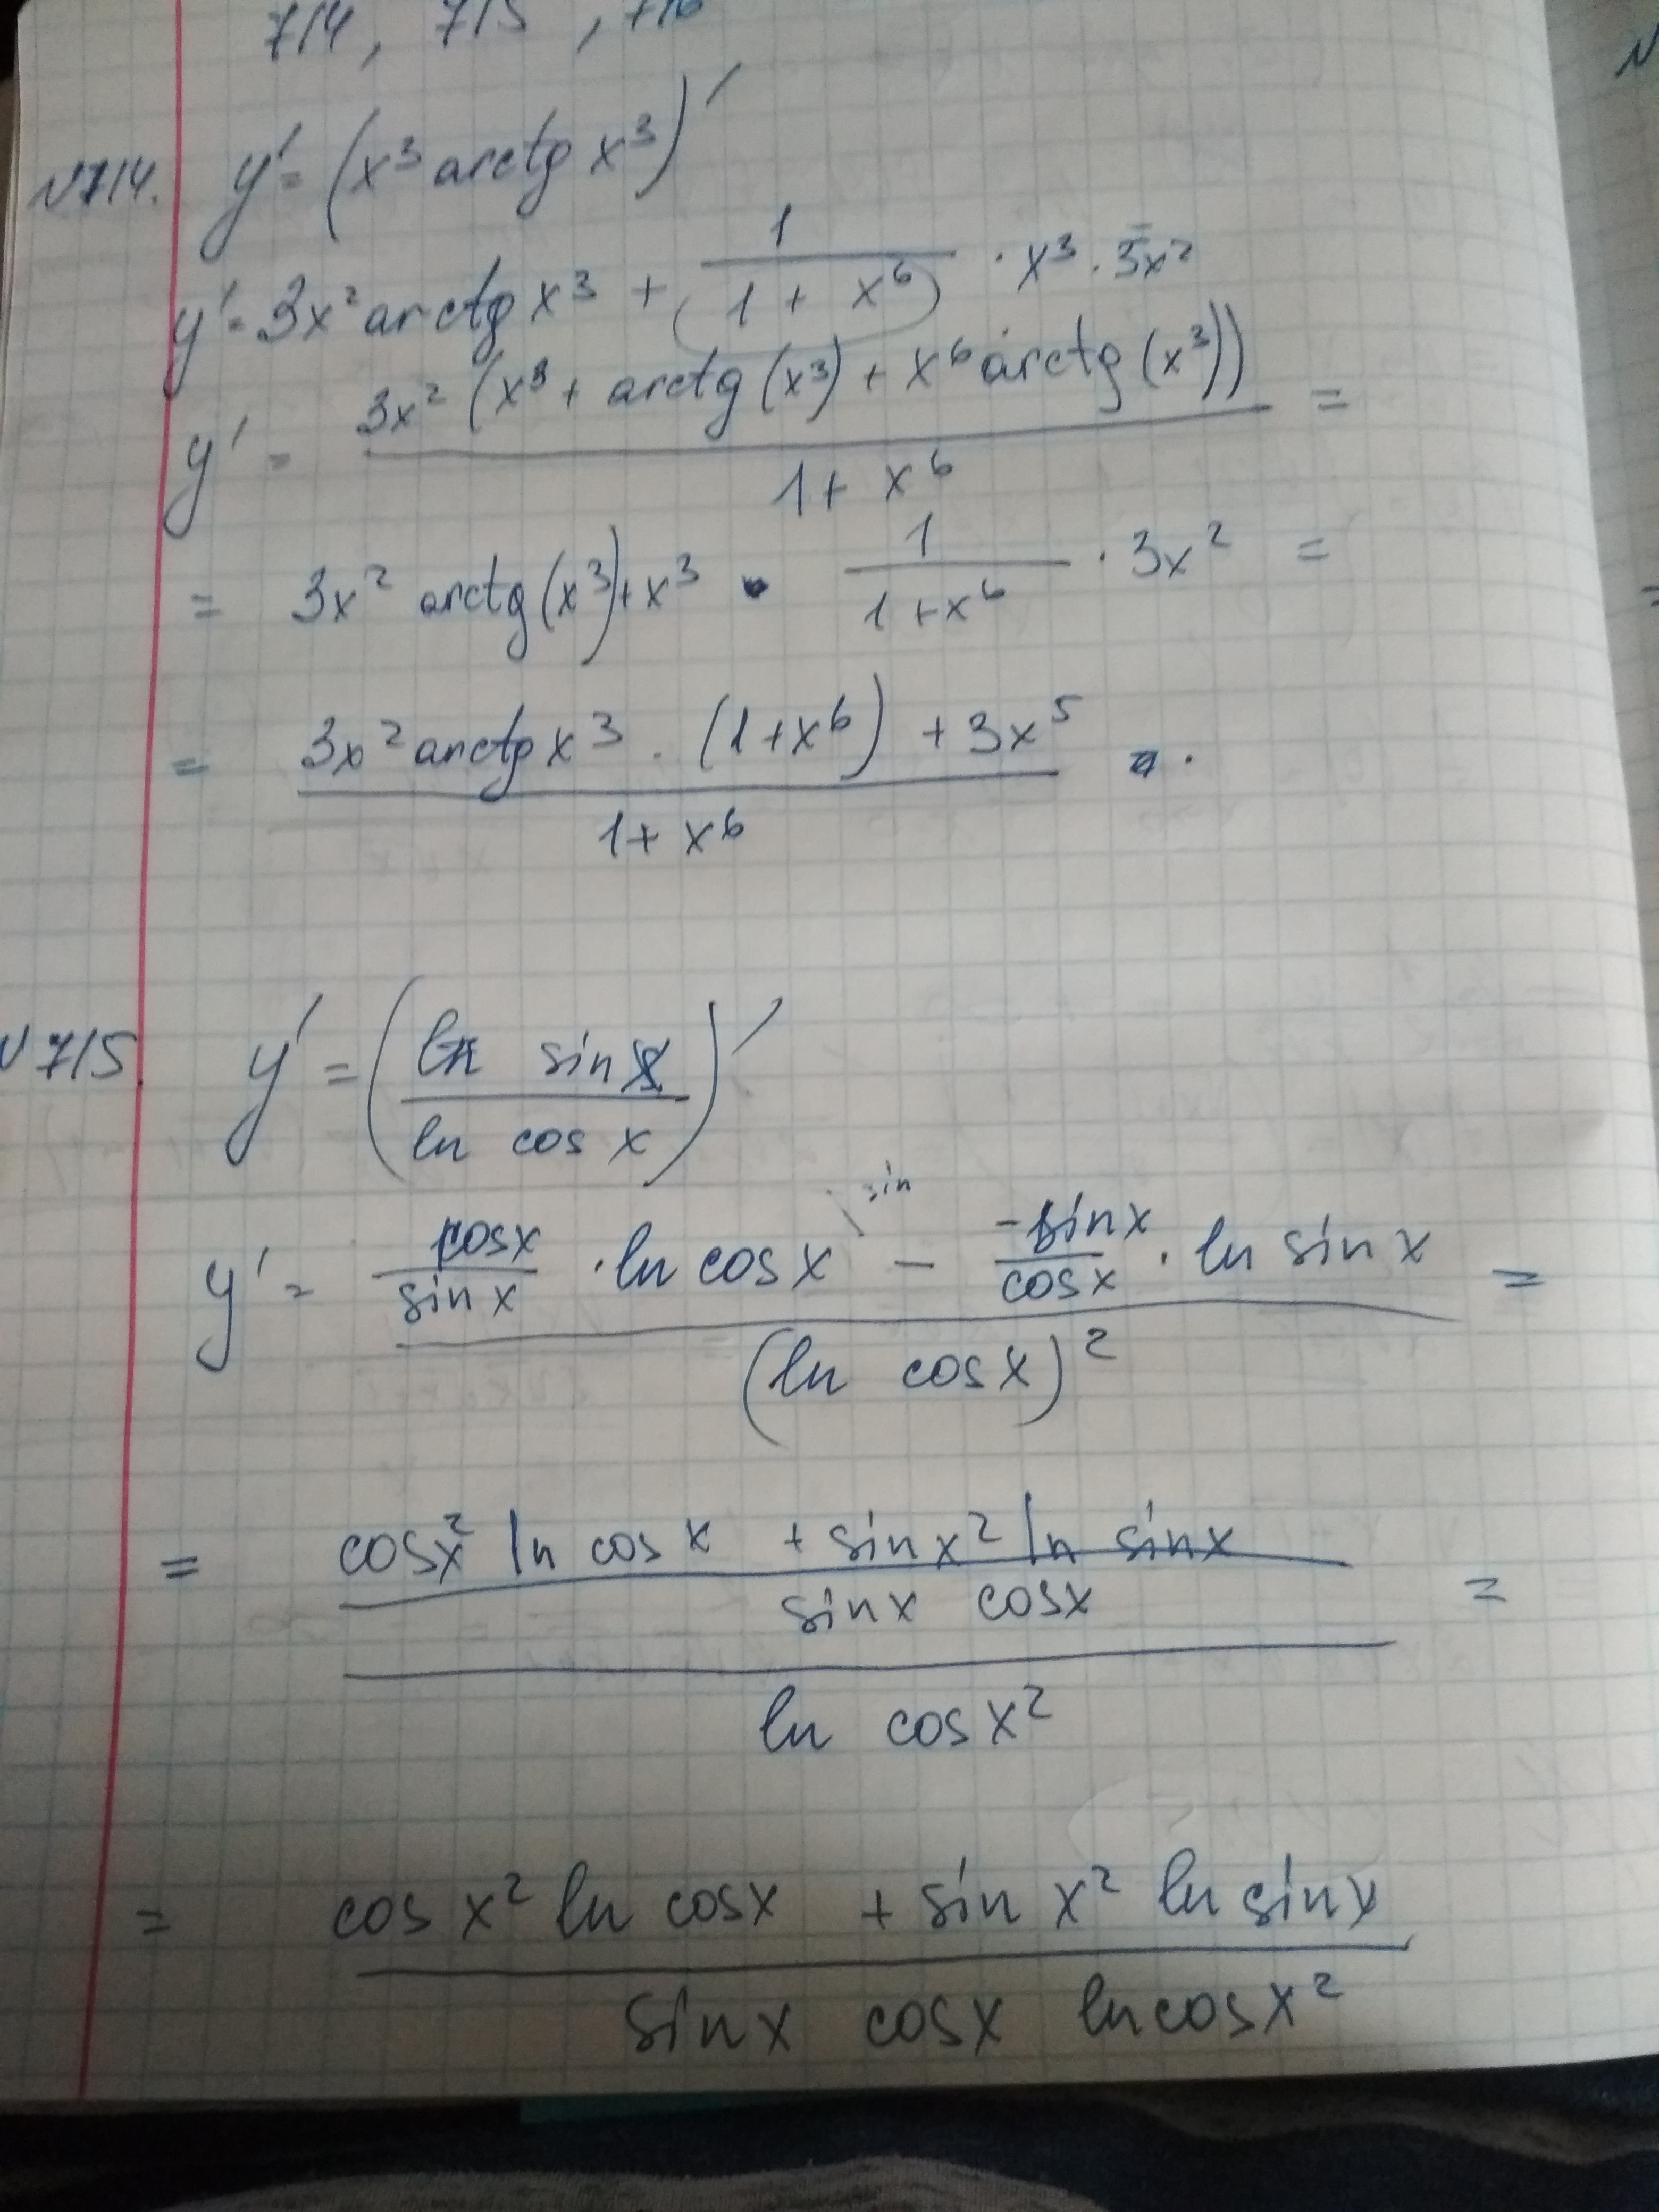 714, 715, 716
N714. y' = (x³ arctg x³)'
y' = 3x² arctg x³ + 1/(1 + x⁶) · x³ · 3x²
y' = 3x² (x³ + arctg (x³) + x⁶ arctg (x³)) / 1 + x⁶ =
= 3x² arctg (x³) + x³ · 1/(1 + x⁶) · 3x² =
= 3x² arctg x³ · (1 + x⁶) + 3x⁵ / 1 + x⁶ .
N715. y' = (ln sin x / ln cos x)'
sin
y' = cos x / sin x · ln cos x − −sin x / cos x · ln sin x / (ln cos x)² =
= cos x² ln cos x + sin x² ln sin x / sin x cos x / ln cos x² =
= cos x² ln cos x + sin x² ln sin x / sin x cos x ln cos x²